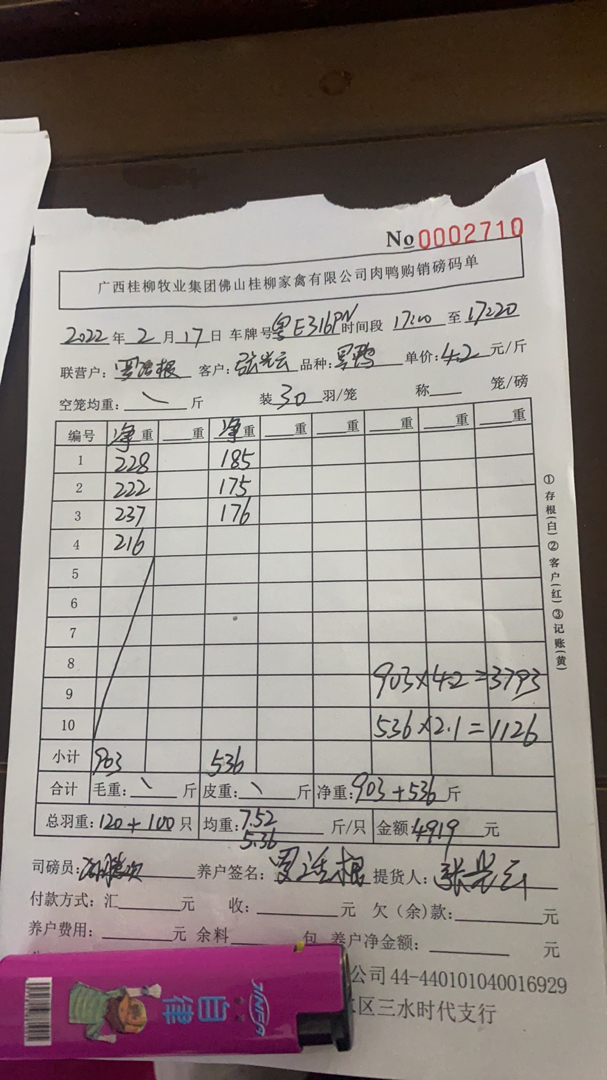 No 0002710
广西桂柳牧业集团佛山桂柳家禽有限公司肉鸭购销磅码单
2022 年 2 月 17 日 车牌号 粤E316PN 时间段 17:00 至 17:20
联营户: 罗 根 客户: 张 云 品种: 黑鸭 单价: 4.2 元/斤
空笼均重: \ 斤 装 30 羽/笼 称 笼/磅
编号 净重 重 净重 重 重 重 重 重
1 228 185
2 222 175
3 237 176
4 216
5
6
7
8
9 903×4.2=3793
10 536×2.1=1126
小计 903 536
合计 毛重: \ 斤 皮重: \ 斤 净重: 903+536 斤
总羽重: 120+100 只 均重: 7.52 斤/只 金额 4919 元
5.36
司磅员: 养户签名: 罗 根 提货人: 张 云
付款方式: 汇 元 收: 元 欠(余)款: 元
养户费用: 元 余料 包 养户净金额: 元
公司 44-440101040016929
区三水时代支行
①存根(白)②客户(红)③记账(黄)
自律
JINFA